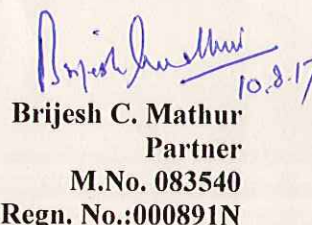 Brijesh Mathur
10.8.17
Brijesh C. Mathur
Partner
M.No. 083540
Regn. No.:000891N